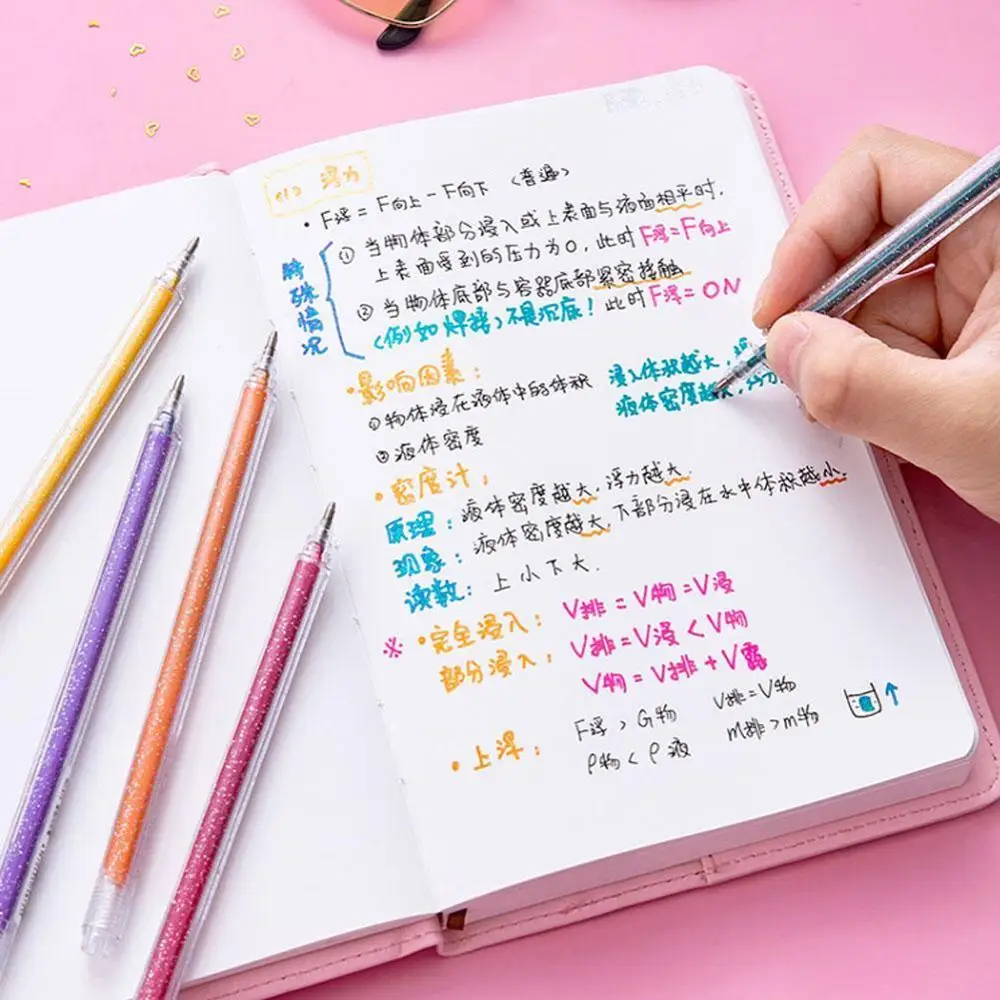 <1> 浮力
· F浮 = F向上 - F向下 (普遍)
特殊情况
① 当物体部分浸入或上表面与液面相平时.
上表面受到的压力为0, 此时 F浮=F向上
② 当物体底部与容器底部紧密接触
(例如焊接)不是沉底! 此时 F浮=0N
·影响因素:
①物体浸在液体中的体积
②液体密度
浸入体积越大,
液体密度越大,
·密度计;
原理: 液体密度越大, 浮力越大.
现象: 液体密度越大, 下部分浸在水中体积越小.
读数: 上小下大.
※ ·完全浸入: V排 = V物 = V浸
部分浸入; V排 = V浸 < V物
V物 = V排 + V露
·上浮: F浮 > G物 V排=V物
ρ物 < ρ液 m排>m物